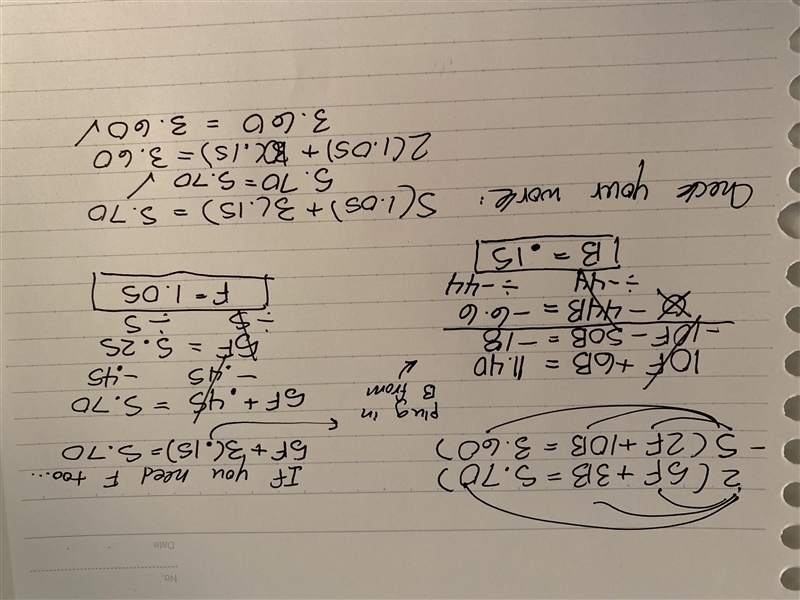 No.
Date
2(5F+3B=5.70)
-5(2F+10B=3.60)
10F+6B = 11.40
-10F-50B = -18
0 -44B = -6.6
÷-44 ÷-44
B = .15
If you need F too...
5F+3(.15)=5.70
plug in
B
from
5F+.45 = 5.70
-.45 -.45
5F = 5.25
÷5 ÷5
F = 1.05
Check your work:
5(1.05)+3(.15) = 5.70
5.70=5.70 √
2(1.05)+ (.15)=3.60
3.60 = 3.60 √